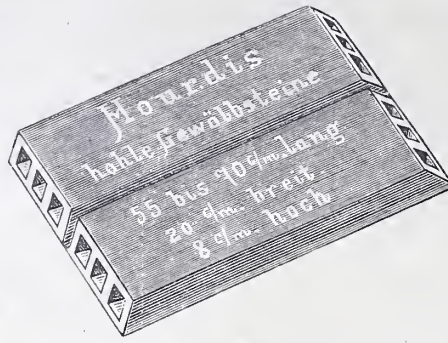 Hourdis
hohle Gewölbsteine
55 bis 70 c/m. lang
20 c/m. breit.
8 c/m. hoch